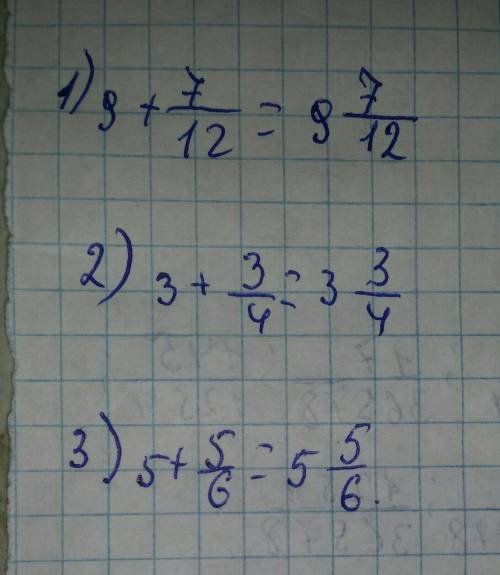 1) 9 + 7/12 = 9 7/12
2) 3 + 3/4 = 3 3/4
3) 5 + 5/6 = 5 5/6.